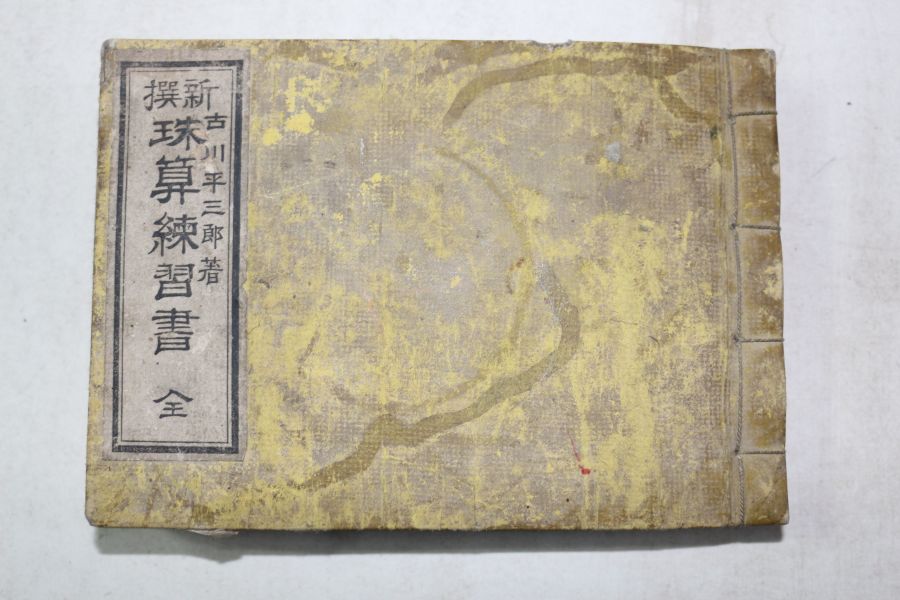 新撰
古川平三郎著
珠算練習書 全